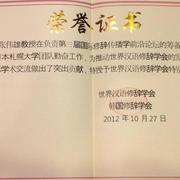 荣誉证书
张伟雄教授在负责第三届国际修辞传播学前沿论坛的筹备
日本札幌大学团队勤奋工作，为推动世界汉语修辞学会的发
学术交流做出了突出贡献，特授予世界汉语修辞学会
世界汉语修辞学会
韩国修辞学会
2012年10月27日